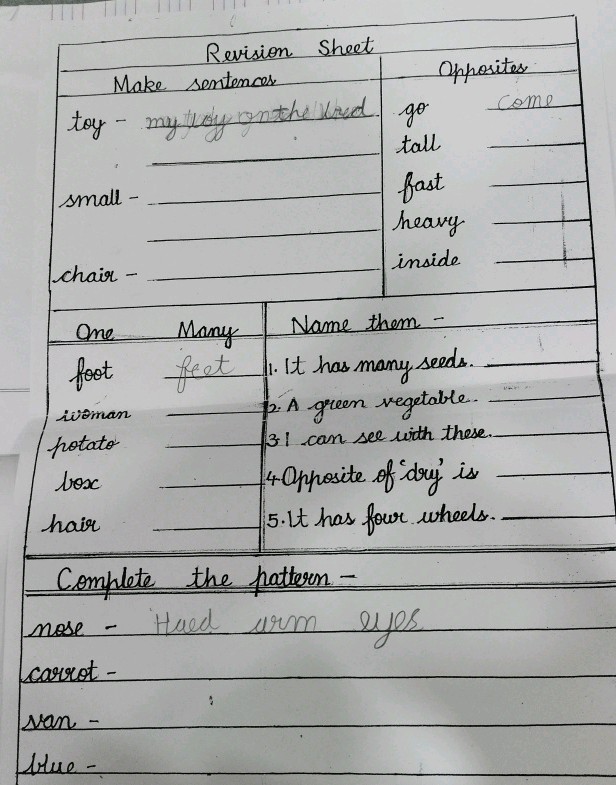 Revision Sheet
Make sentences
toy - my toy on the bed
small -
chair -
Opposites
go come
tall
fast
heavy
inside
One Many
foot feet
woman
potato
box
hair
Name them -
1. It has many seeds.
2. A green vegetable.
3. I can see with these.
4. Opposite of 'dry' is
5. It has four wheels.
Complete the pattern -
nose - Haed arm eyes
carrot -
van -
blue -